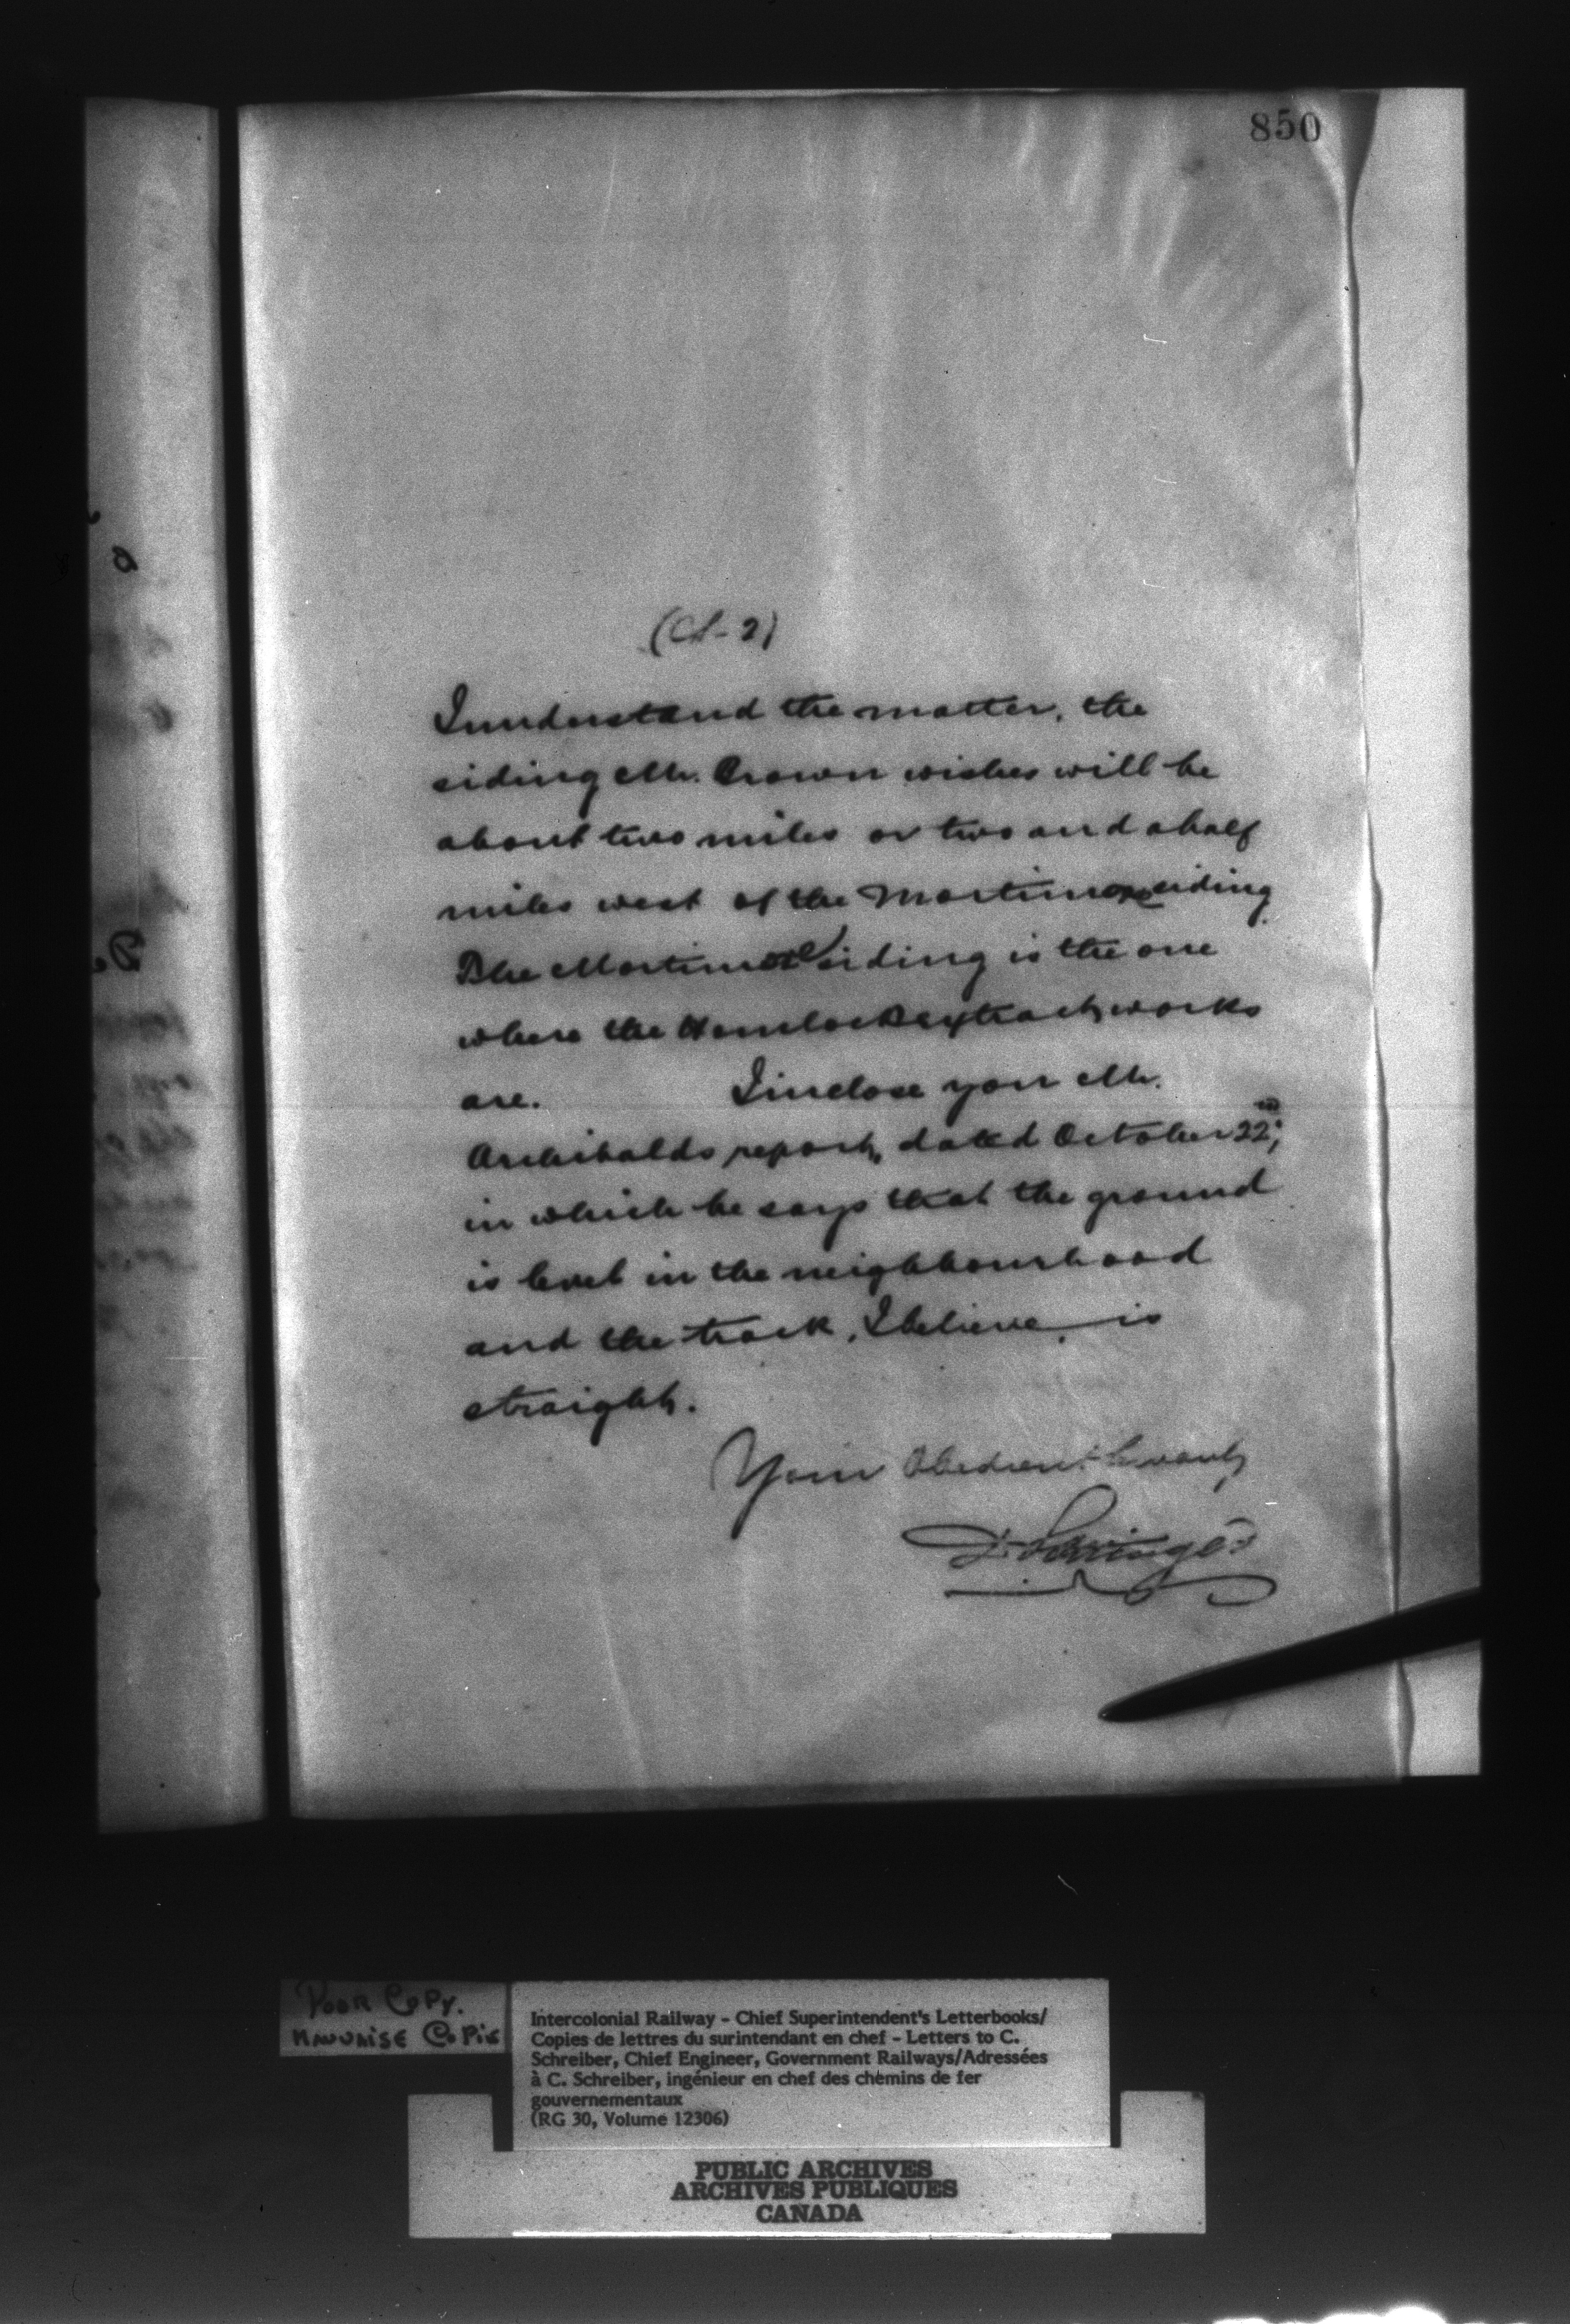 850
(CS-2)
I understand the matter, the
siding Mr. Crown wishes will be
about two miles or two and a half
miles west of the Mortimore siding
The Mortimore siding is the one
where the Hemlock extract works
are. I inclose you Mr.
Archibalds report, dated October 22nd,
in which he says that the ground
is level in the neighbourhood
and the track, I believe, is
straight.
Your Obedient Servant,
D. Pottinger
POOR COPY.
MAUVAISE COPIE
Intercolonial Railway - Chief Superintendent's Letterbooks/
Copies de lettres du surintendant en chef - Letters to C.
Schreiber, Chief Engineer, Government Railways/Adressées
à C. Schreiber, ingénieur en chef des chemins de fer
gouvernementaux
(RG 30, Volume 12306)
PUBLIC ARCHIVES
ARCHIVES PUBLIQUES
CANADA